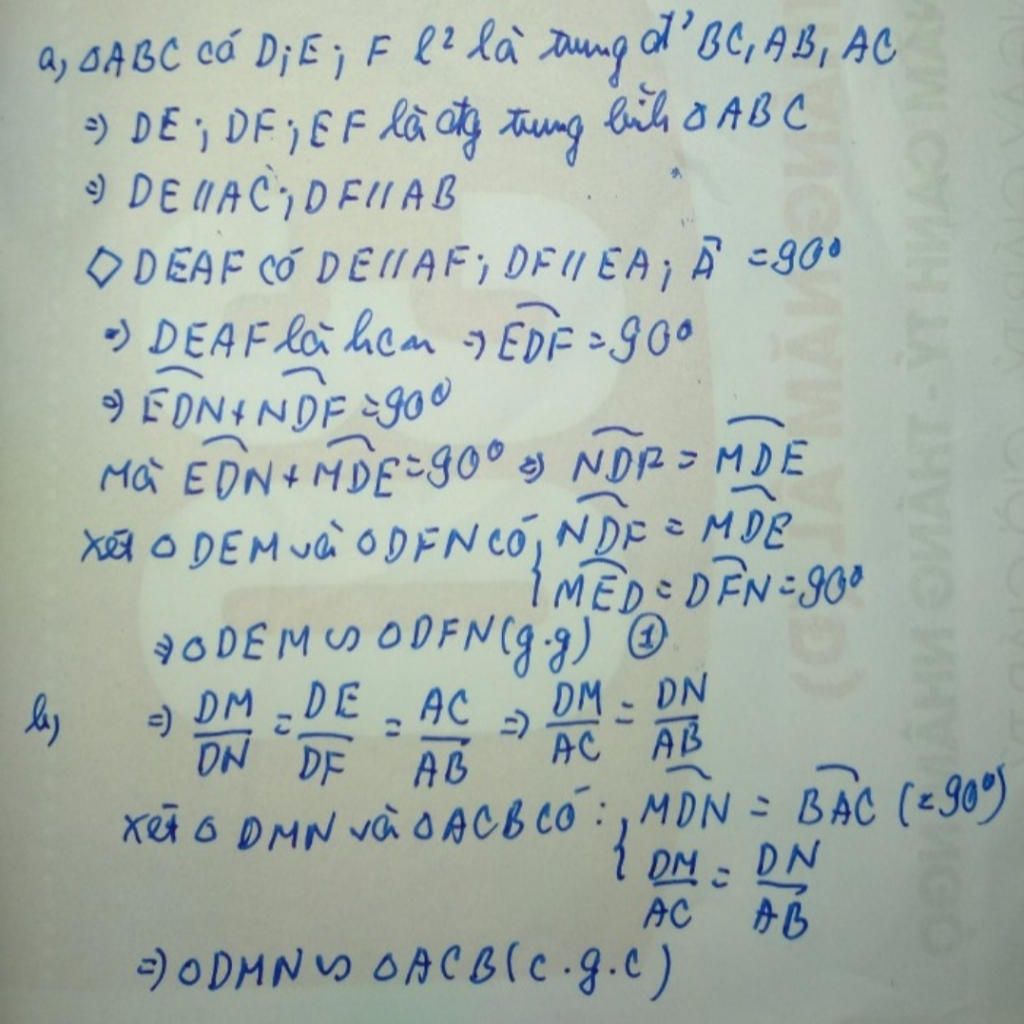 a, ΔABC có D; E; F l² là trung đ' BC, AB, AC
=> DE; DF; EF là đtg trung bình ΔABC
=> DE//AC; DF//AB
◇DEAF có DE//AF; DF//EA; Â = 90°
=> DEAF là hcn => \widehat{EDF} = 90°
=> \widehat{EDN} + \widehat{NDF} = 90°
Mà \widehat{EDN} + \widehat{MDE} = 90° => \widehat{NDF} = \widehat{MDE}
Xét ΔDEM và ΔDFN có { \widehat{NDF} = \widehat{MDE}
\widehat{MED} = \widehat{DFN} = 90°
=> ΔDEM ∽ ΔDFN (g.g) ①
b, => DM/DN = DE/DF = AC/AB => DM/AC = DN/AB
Xét Δ DMN và ΔACB có: { \widehat{MDN} = \widehat{BAC} (=90°)
DM/AC = DN/AB
=> ΔDMN ∽ ΔACB (c.g.c)